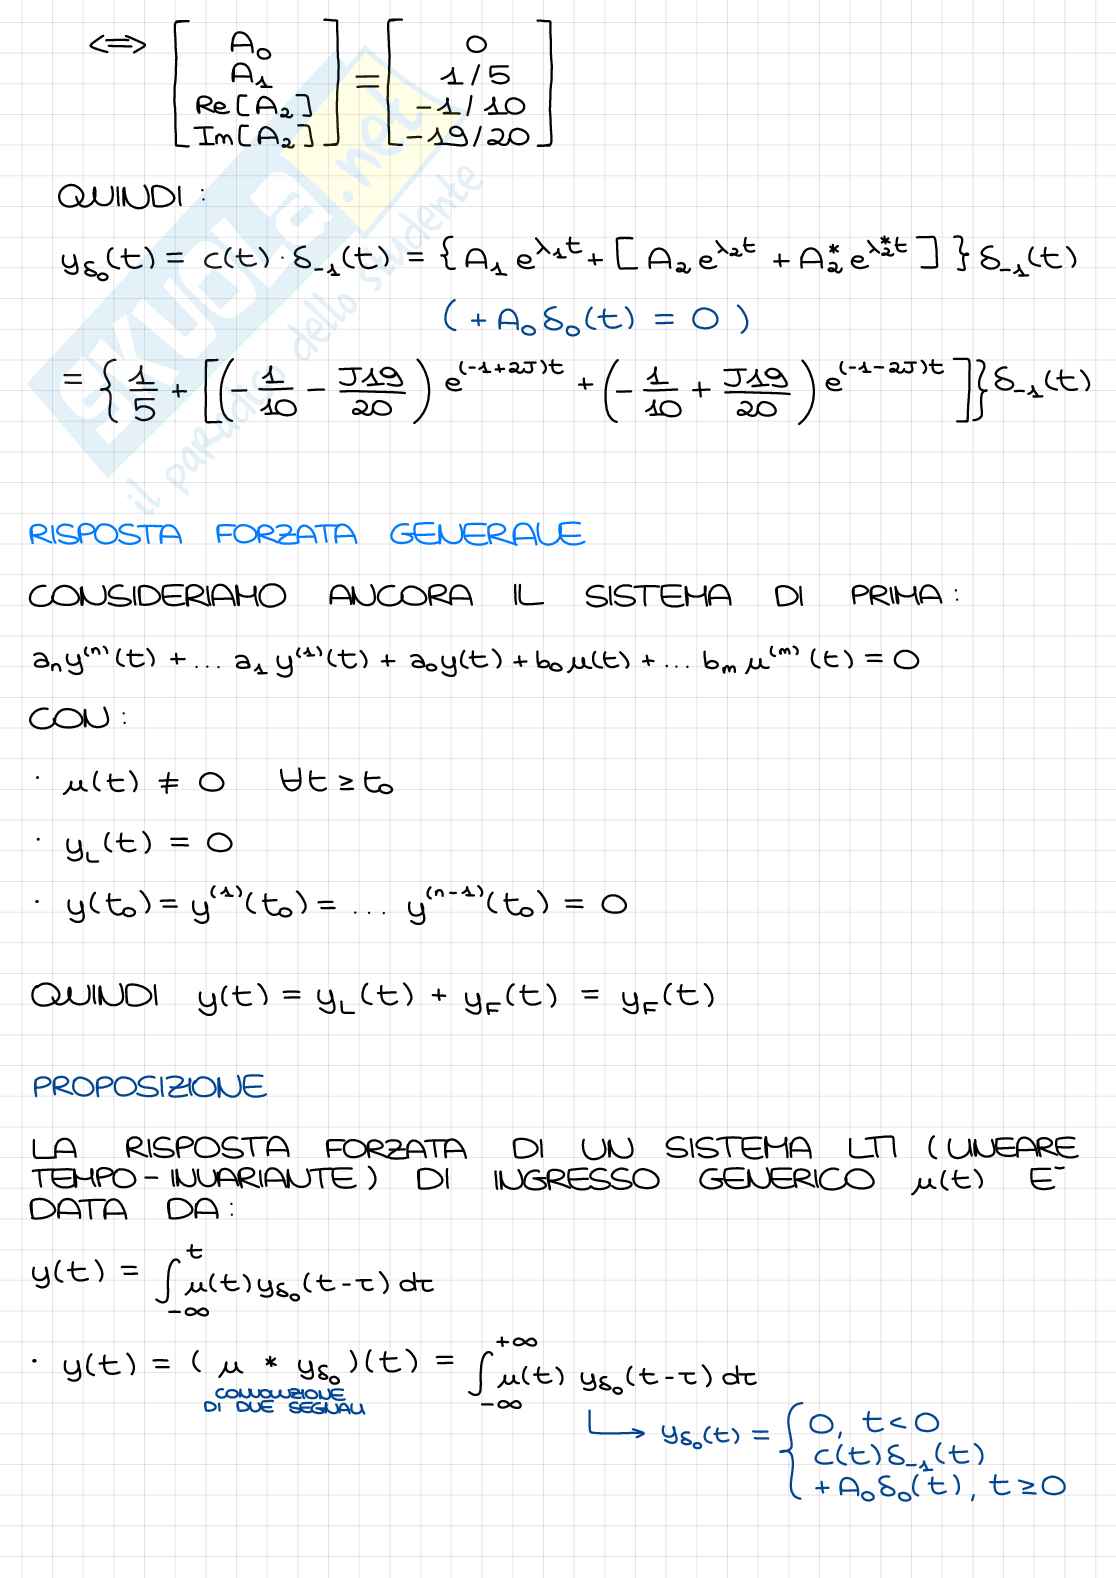 ⟺ [A₀ A₁ Re[A₂] Im[A₂]] = [0 1/5 -1/10 -19/20]
QUINDI:
y_δ₀(t) = c(t)·δ₋₁(t) = {A₁e^{λ₁t} + [A₂e^{λ₂t} + A₂*e^{λ₂*t}]}δ₋₁(t)
(+A₀δ₀(t) = 0)
= {1/5 + [(-1/10 - J19/20)e^{(-1+2J)t} + (-1/10 + J19/20)e^{(-1-2J)t}]}δ₋₁(t)
RISPOSTA FORZATA GENERALE
CONSIDERIAMO ANCORA IL SISTEMA DI PRIMA:
aₙy⁽ⁿ⁾(t) + ... a₁y⁽¹⁾(t) + a₀y(t) + b₀μ(t) + ... bₘμ⁽ᵐ⁾(t) = 0
CON:
· μ(t) ≠ 0 ∀t ≥ t₀
· y_L(t) = 0
· y(t₀) = y⁽¹⁾(t₀) = ... y⁽ⁿ⁻¹⁾(t₀) = 0
QUINDI y(t) = y_L(t) + y_F(t) = y_F(t)
PROPOSIZIONE
LA RISPOSTA FORZATA DI UN SISTEMA LTI (LINEARE
TEMPO-INVARIANTE) DI INGRESSO GENERICO μ(t) E-
DATA DA:
y(t) = ∫_{-∞}^{t} μ(t)y_δ₀(t-τ)dτ
· y(t) = (μ * y_δ₀)(t) = ∫_{-∞}^{+∞} μ(t) y_δ₀(t-τ)dτ
CONVOLUZIONE
DI DUE SEGNALI
↳ y_δ₀(t) = { 0, t<0
c(t)δ₋₁(t)
+A₀δ₀(t), t≥0
SKUOLA.net
il paradiso dello studente